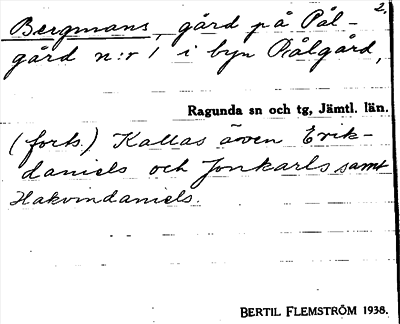 2.
Bergmans, gård på Pål-
gård n:r 1 i byn Pålgård,
Ragunda sn och tg, Jämtl. län.
(forts.) Kallas även Erik-
daniels och Jonkarls samt
Hakvindaniels.
BERTIL FLEMSTRÖM 1938.